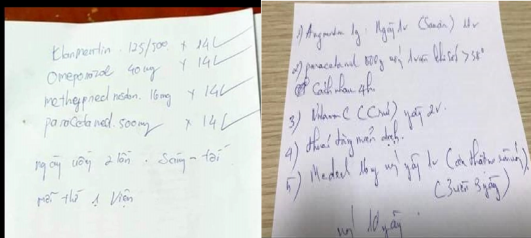 Klamentin. 125/500 x 14
Omeprazol 40mg x 14
methyppred nisolon. 16mg x 14
paracetamol. 500mg x 14
ngày uống 2 lần. Sáng - tối
mỗi thứ 1 viên
1) Augmentin 1g. Ngày 2v (Sandoz)
2) paracetamol 500g uống 1 viên khi sốt > 38°
Cách nhau 4h
3) Vitamin C ngày 2v.
4) thuốc tăng miễn dịch.
5) Medrol 16g uống ngày 1v
(3 viên 3 ngày)
uống 10 ngày.